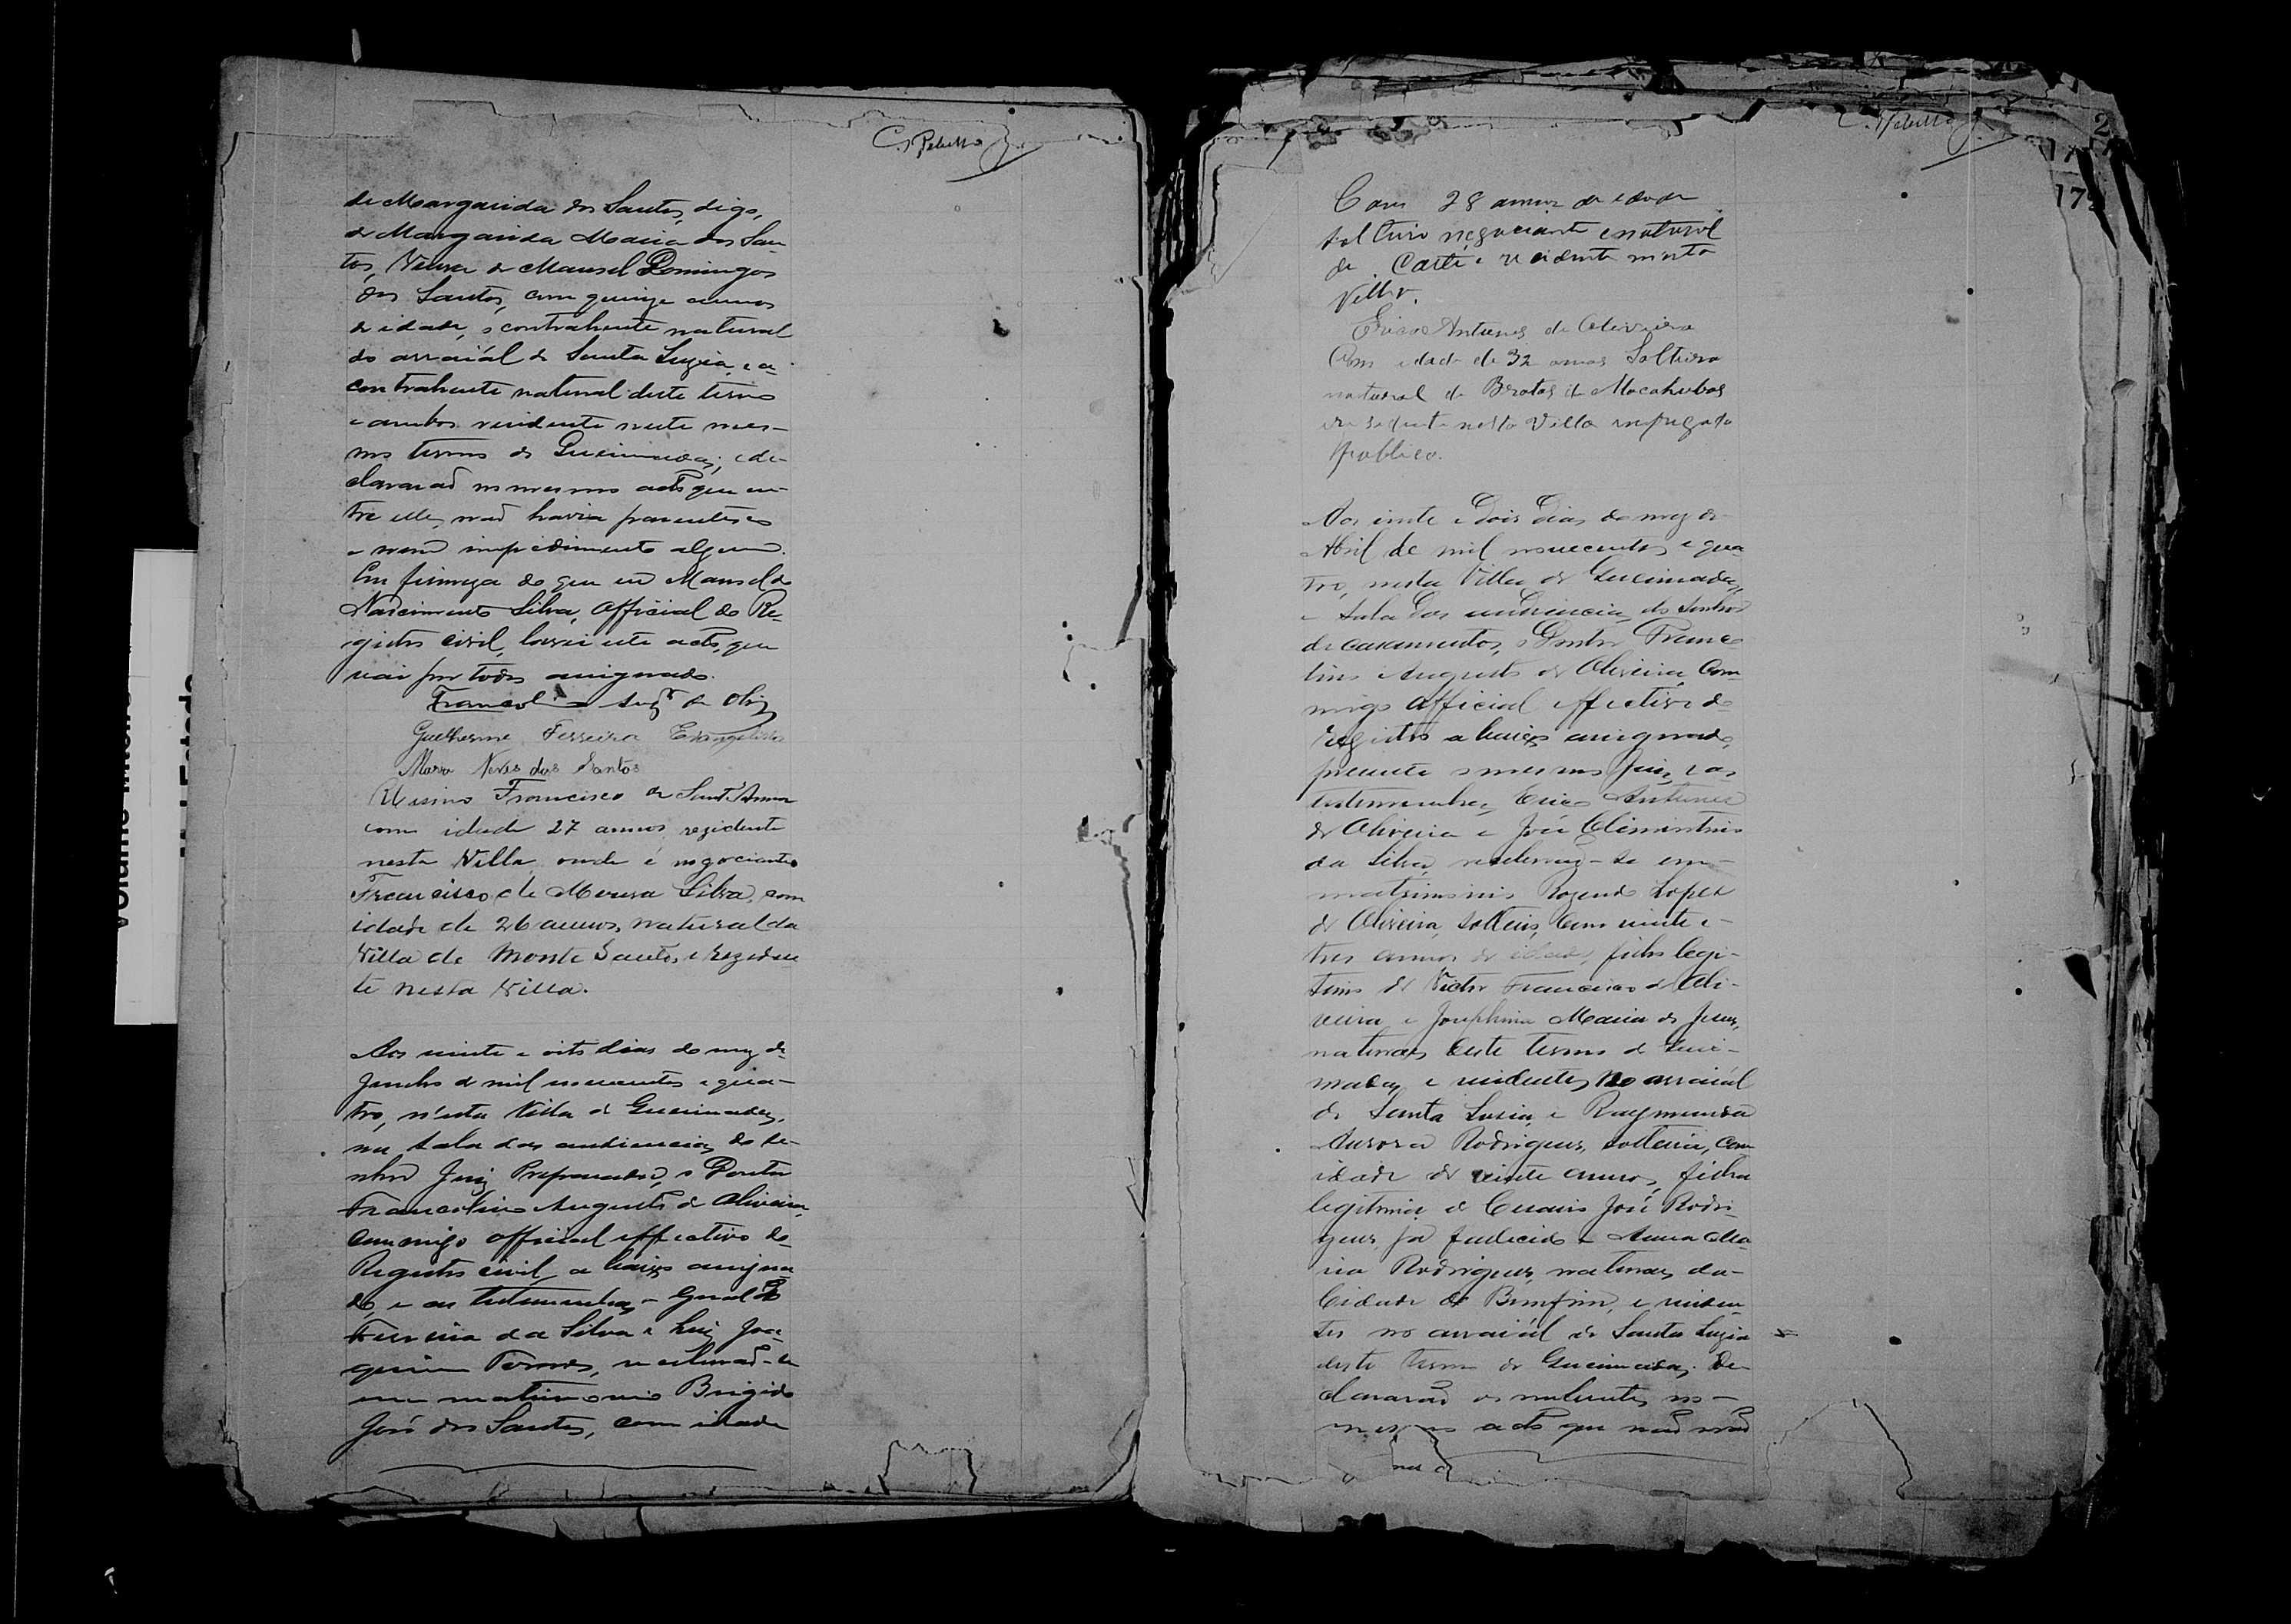 C. Rebello
de Margarida dos Santos, digo,
de Margarida Maria dos San
tos, Viuva de Manoel Domingos
dos Santos, com quinze annos
de idade, o contrahente natural
do arraiál de Santa Luzia, e a
contrahente natural deste termo
e ambos residente neste mes-
mo termo de Queimadas; e de-
clararaõ no mesmo acto que en-
tre elles naõ havia parentesco
e nem impedimento algum.
Em firmeza do que eu Manoel do
Nascimento Silva, Official do Re-
gistro civil, lavrei este acto, que
vai por todos assignado.
Francolino Augto de Olivª
Guilherme Ferreira Evangelista
Maria Neves dos Santos
Francisco de Sant'Anna
com idade 27 annos, rezidente
nesta Villa, onde é negociante
Francisco de Moura Silva, com
idade de 26 annos, natural da
Villa de Monte Santo, e reziden
te nesta Villa.
Aos vinte e oito dias do mez de
Junho de mil novecentos e qua-
tro, n'esta Villa de Queimadas,
na sala das audiencias do Se-
nhor Juiz Preparador, o Doutor
Francolino Augusto de Oliveira,
commigo official effectivo do
Registro civil, a baixo assigna
do, e as testemunhas
Ferreira da Silva e Luiz Joa-
quim Torres, receberaõ-se
em matrimonio Brigido
José dos Santos, com idade
C. Rebello
2
17
172
Com 28 annos de edade
solteiro negociante e natural
de Corte e residente nesta
Villa.
Erico Antunes de Oliveira
Com edade de 32 annos Solteiro
natural de Brotas de Macahubas
residente nesta Villa empregado
publico.
Aos vinte e dois dias do mez de
Abril de mil novecentos e qua
tro, nesta Villa de Queimadas,
e Sala das audiencias do Senhor
de casamentos, o Doutor Franco
lino Augusto de Oliveira, Com
migo Official effectivo do
registro a baixo assignado,
presente o mesmo Juiz, e as
testemunhas Erico Antunes
de Oliveira e José Clementino
da Silva, receberaõ-se em
matrimonio Rozendo Lopes
de Oliveira, solteiro, com vinte e
tres annos de idade, filho legi-
timo de Victor Francisco de Oli-
veira e Josephina Maria de Jesus,
naturaes deste termo de Quei-
madas e residentes no arraiál
de Santa Lusia, e Raymunda
Aurora Rodrigues, solteira, com
idade de vinte annos, filha
legitima de José Rodri
gues, já fallecido e Anna Ma
ria Rodrigues, naturaes da
Cidade de Bomfim, e residen
tes no arraiál de Santa Luzia
deste termo de Queimadas. De
clararaõ os nubentes no
mesmo acto que naõ